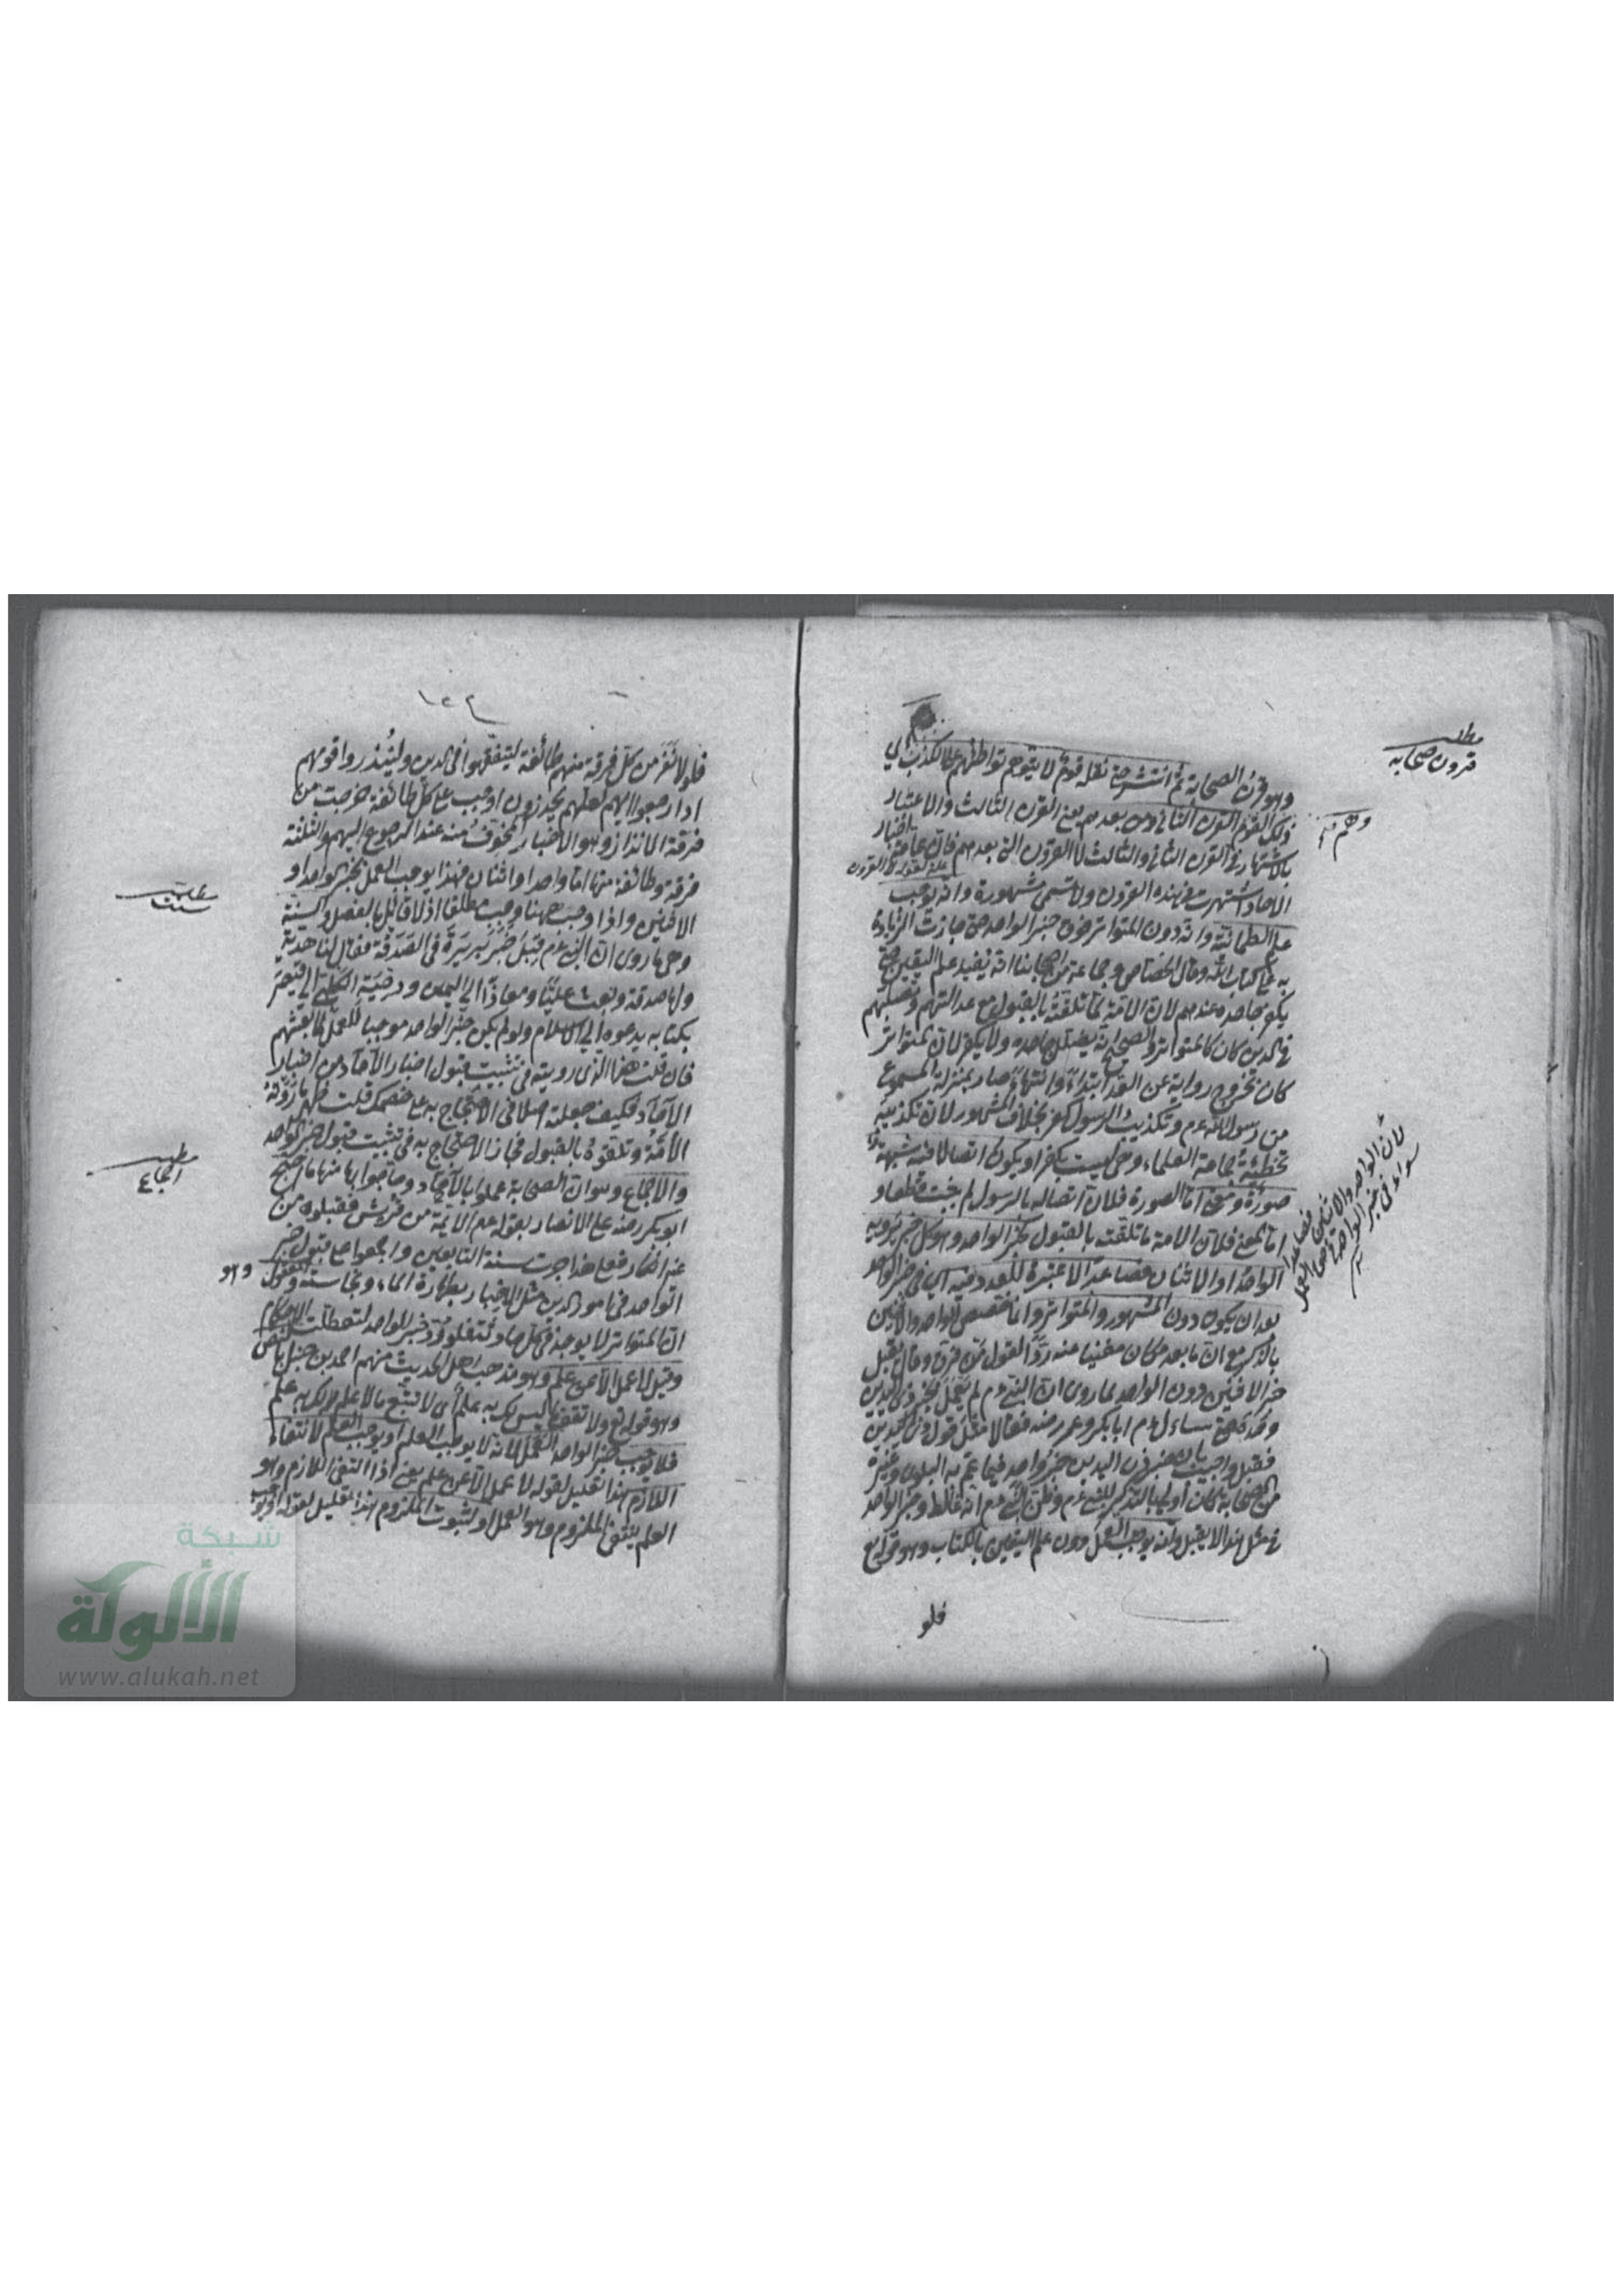 وهو قرن الصحابة ثم انتشر حتى نقله قوم لا يتوهم تواطئهم على الكذب اي
ذلك القوم القرن الثاني ومن بعدهم يعني القرن الثالث والاعتبار
بالاشتهار في القرن الثاني والثالث لا القرون التي بعدهم فان عامة اخبار
الاحاد اشتهرت في هذه القرون ولا تسمى مشهورة وانه يوجب
علم الطمانينة وانه دون المتواتر فوق خبر الواحد حتى جازت الزيادة
به على كتاب الله وقال الجصاص وجماعة من اصحابنا انه يفيد علم اليقين حتى
يكفر جاحده عندهم لان الامة لما تلقته بالقبول مع عدالتهم وتصلبهم
في الدين كان كالمتواتر والصحيح انه يضلل جاحده ولا يكفر لان المتواتر
كان تخرج رواية عن العد ابتداء وانتهاء صار بمنزلة المسموع
من رسول الله ءم وتكذيب الرسول كفر بخلاف المشهور لان تكذيبه
تخطئة جماعة العلماء وهي ليست بكفر او يكون اتصالا فيه شبهة
صورة ومعنى اما الصورة فلان اتصاله بالرسول لم يثبت قطعا و
اما المعنى فلان الامة ما تلقته بالقبول كخبر الواحد وهو كل خبر يرويه
الواحد او الاثنان فصاعدا لا عبرة للعدد فيه اي في خبر الواحد
بعد ان يكون دون المشهور والمتواتر وانما خصص الواحد والاثنين
بالذكر مع ان ما بعده كان مغنيا عنه ردا لقول من فرق وقال يقبل
خبر الاثنين دون الواحد لما روى ان النبي ءم لم يعمل بخبر ذي اليدين
وحده حتى سال ءم ابا بكر وعمر رضه فقالا مثل قول ذي اليدين
فقبل واجيب بان خبر ذي اليدين خبر واحد فيما عم به البلوى وغيره
من الصحابة كان اولى بالتذكير للنبي ءم وظن النبي ءم انه غالط وخبر الواحد
في مثل هذا لا يقبل وانه يوجب العمل دون علم اليقين بالكتاب وهو قوله تع
فلو
مطلب
قرون صحابه
وهم
لان الواحد والاثنين فصاعدا
سواء في خبر الواحد
فلولا نفر من كل فرقة منهم طائفة ليتفقهوا في الدين ولينذروا قومهم
اذا رجعوا اليهم لعلهم يحذرون اوجب على كل طائفة خرجت من
فرقة الانذار وهو الاخبار المخوف منه عند الرجوع اليهم والثلثة
فرقة وطائفة منها اما واحد او اثنان فهذا يوجب العمل بخبر الواحد او
الاثنين واذا وجب ههنا وجب مطلقا اذ لا قائل بالفصل والسنة
وهي ما روى ان النبي ءم قبل خبر بريرة في الصدقة فقال لنا هدية
ولها صدقة وبعث عليا ومعاذا الى اليمن ودحية الكلبي الى قيصر
بكتابه يدعوه الى الاسلام ولو لم يكن خبر الواحد موجبا للعمل لما بعثهم
فان قلت هذا الذي رويته في تثبيت قبول اخبار الآحاد من اخبار
الآحاد فكيف جعلته اصلا في الاحتجاج به على خصمك قلت ظهر ما روته
الامة وتلقوه بالقبول فجاز الاحتجاج به في تثبيت قبول خبر الواحد
والاجماع وهو ان الصحابة عملوا بالآحاد وحاجوا بها منها ما احتج
ابو بكر رضه على الانصار بقوله ءم الائمة من قريش فقبلوه من
غير انكار فعلى هذا جرت سنة التابعين واجمعوا على قبول خبر
الواحد في امور الدين مثل الاخبار بطهارة الماء ونجاسته والمعقول وهو
ان المتواتر لا يوجد في كل حادثة فلو رد خبر الواحد لتعطلت الاحكام
وقيل لا عمل الا عن علم وهو مذهب اهل الحديث منهم احمد بن حنبل بالنص
وهو قوله تع ولا تقف ما ليس لك به علم اي لا تتبع ما لا علم لك به علم
فلا توجب خبر الواحد العمل لانه لا يوجب العلم او يوجب العلم لانتفاء
اللازم هذا تعليل لقوله لا عمل الا عن علم يعني اذا انتفى اللازم وهو
العلم ينتفي الملزوم وهو العمل او لثبوت الملزوم هذا تعليل لقوله او يوجب
مطلب
سنت
مطلب
اجماع
شبكة
الألوكة
www.alukah.net